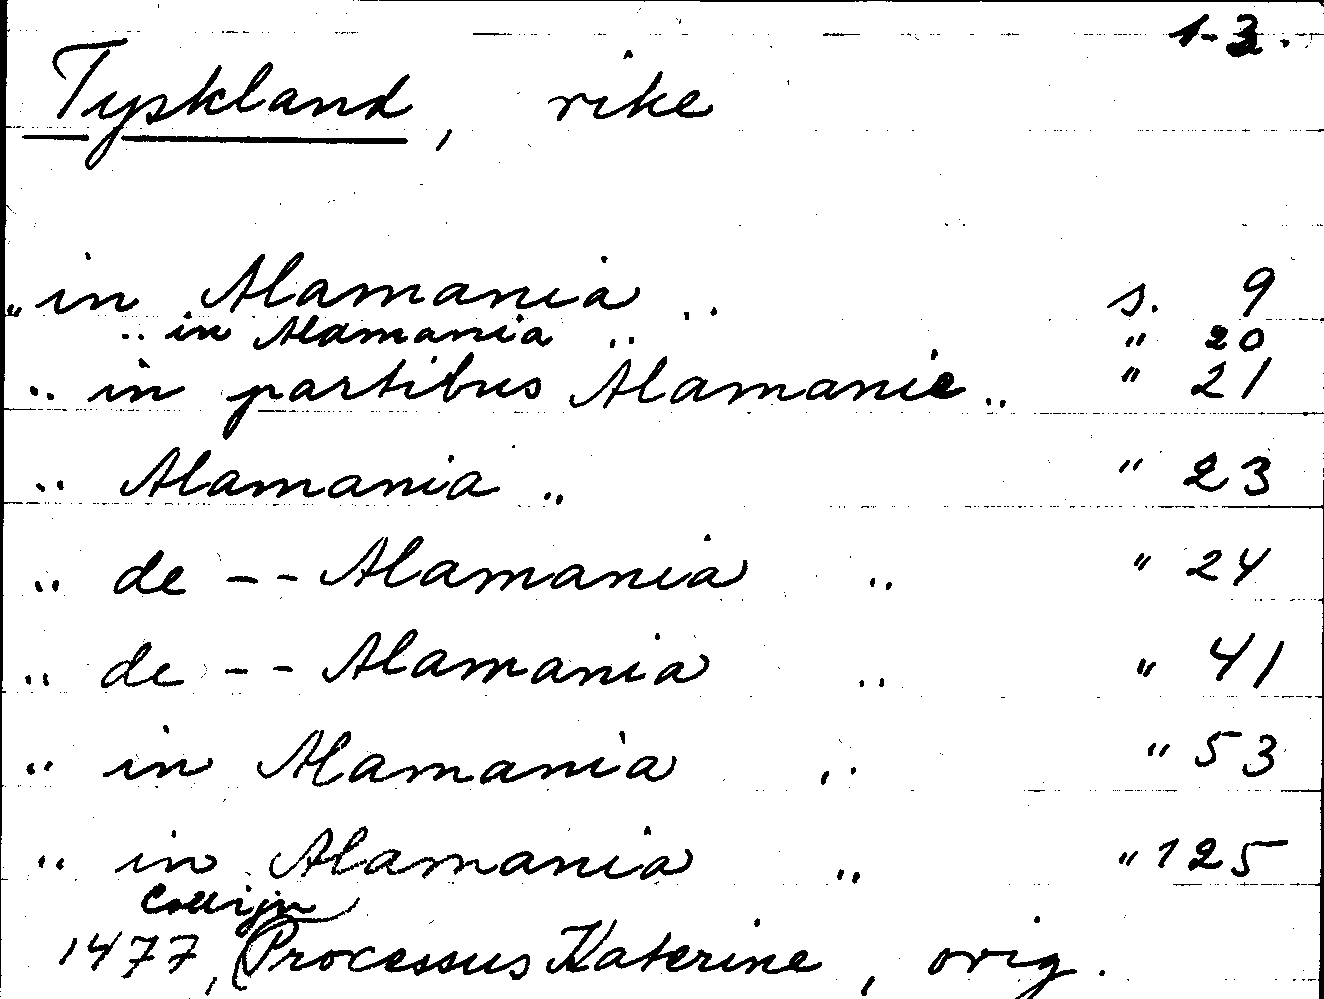 1-3.
Tyskland, rike
.. in Alamania .. s. 9
.. in Alamania .. " 20
.. in partibus Alamanie .. " 21
.. Alamania .. " 23
.. de -- Alamania .. " 24
.. de -- Alamania .. " 41
.. in Alamania .. " 53
.. in Alamania .. " 125
Collijn
1477, Processus Katerine, orig.